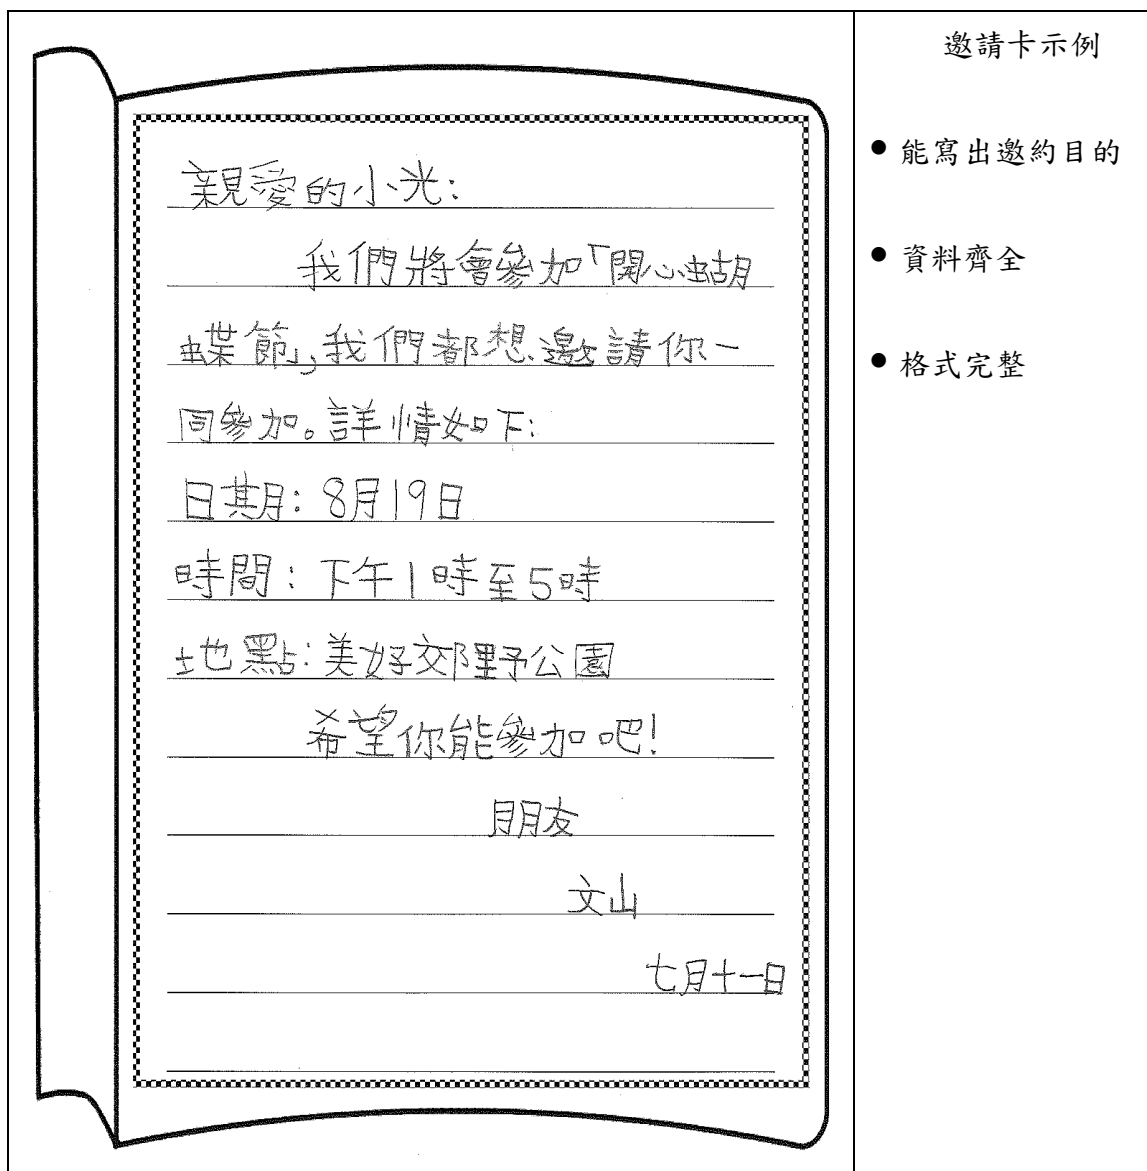 親愛的小光：
我們將會參加「開心蝴
蝶節」，我們都想邀請你一
同參加。詳情如下：
日期：8月19日
時間：下午1時至5時
地點：美好郊野公園
希望你能參加吧！
朋友
文山
七月十一日
邀請卡示例
● 能寫出邀約目的
● 資料齊全
● 格式完整